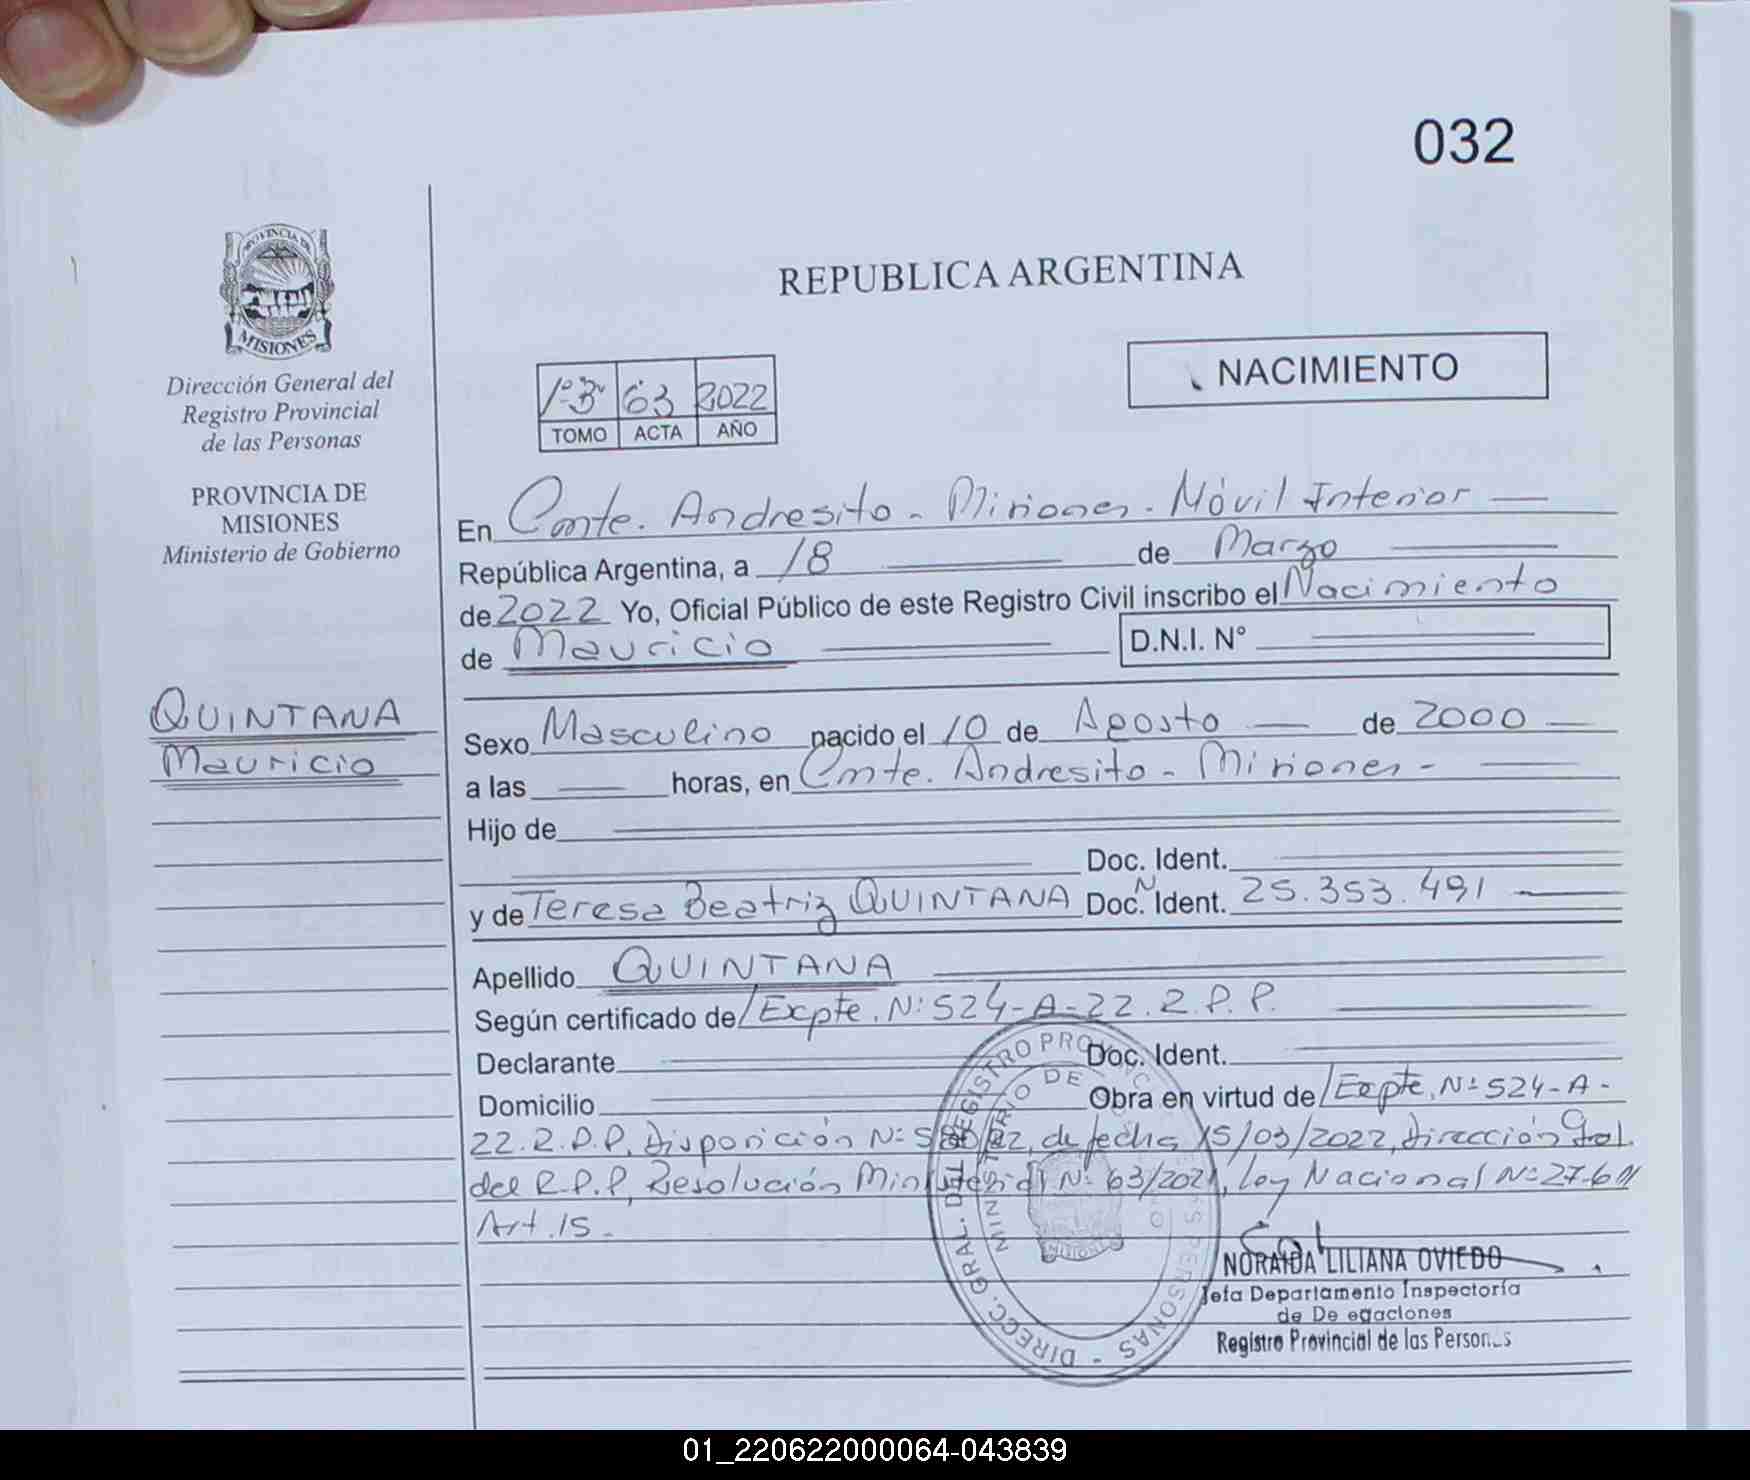 032
PROVINCIA DE
MISIONES
Dirección General del
Registro Provincial
de las Personas
PROVINCIA DE
MISIONES
Ministerio de Gobierno
REPUBLICA ARGENTINA
1º B 63 2022
TOMO ACTA AÑO
NACIMIENTO
En Cmte. Andresito - Misiones - Móvil Interior
República Argentina, a 18 de Marzo
de 2022 Yo, Oficial Público de este Registro Civil inscribo el Nacimiento
de Mauricio D.N.I. N°
QUINTANA
Mauricio
Sexo Masculino nacido el 10 de Agosto de 2000
a las horas, en Cmte. Andresito - Misiones -
Hijo de
Doc. Ident.
y de Teresa Beatriz QUINTANA Doc. N Ident. 25.353.491
Apellido QUINTANA
Según certificado de/Expte. Nº 524-A-22.R.P.P.
Declarante Doc. Ident.
Domicilio Obra en virtud de/Expte. Nº 524-A-
22.R.P.P. Disposición Nº /22, de fecha 15/03/2022, Dirección Gral.
del R.P.P, Resolución Ministerial Nº 63/2021, Ley Nacional Nº 27.611
Art. 15.
DIRECC. GRAL. DEL REGISTRO PROVINCIAL DE LAS PERSONAS -
MINISTERIO DE
NORAIDA LILIANA OVIEDO
Jefa Departamento Inspectoría
de De egaciones
Registro Provincial de las Personas
01_220622000064-043839